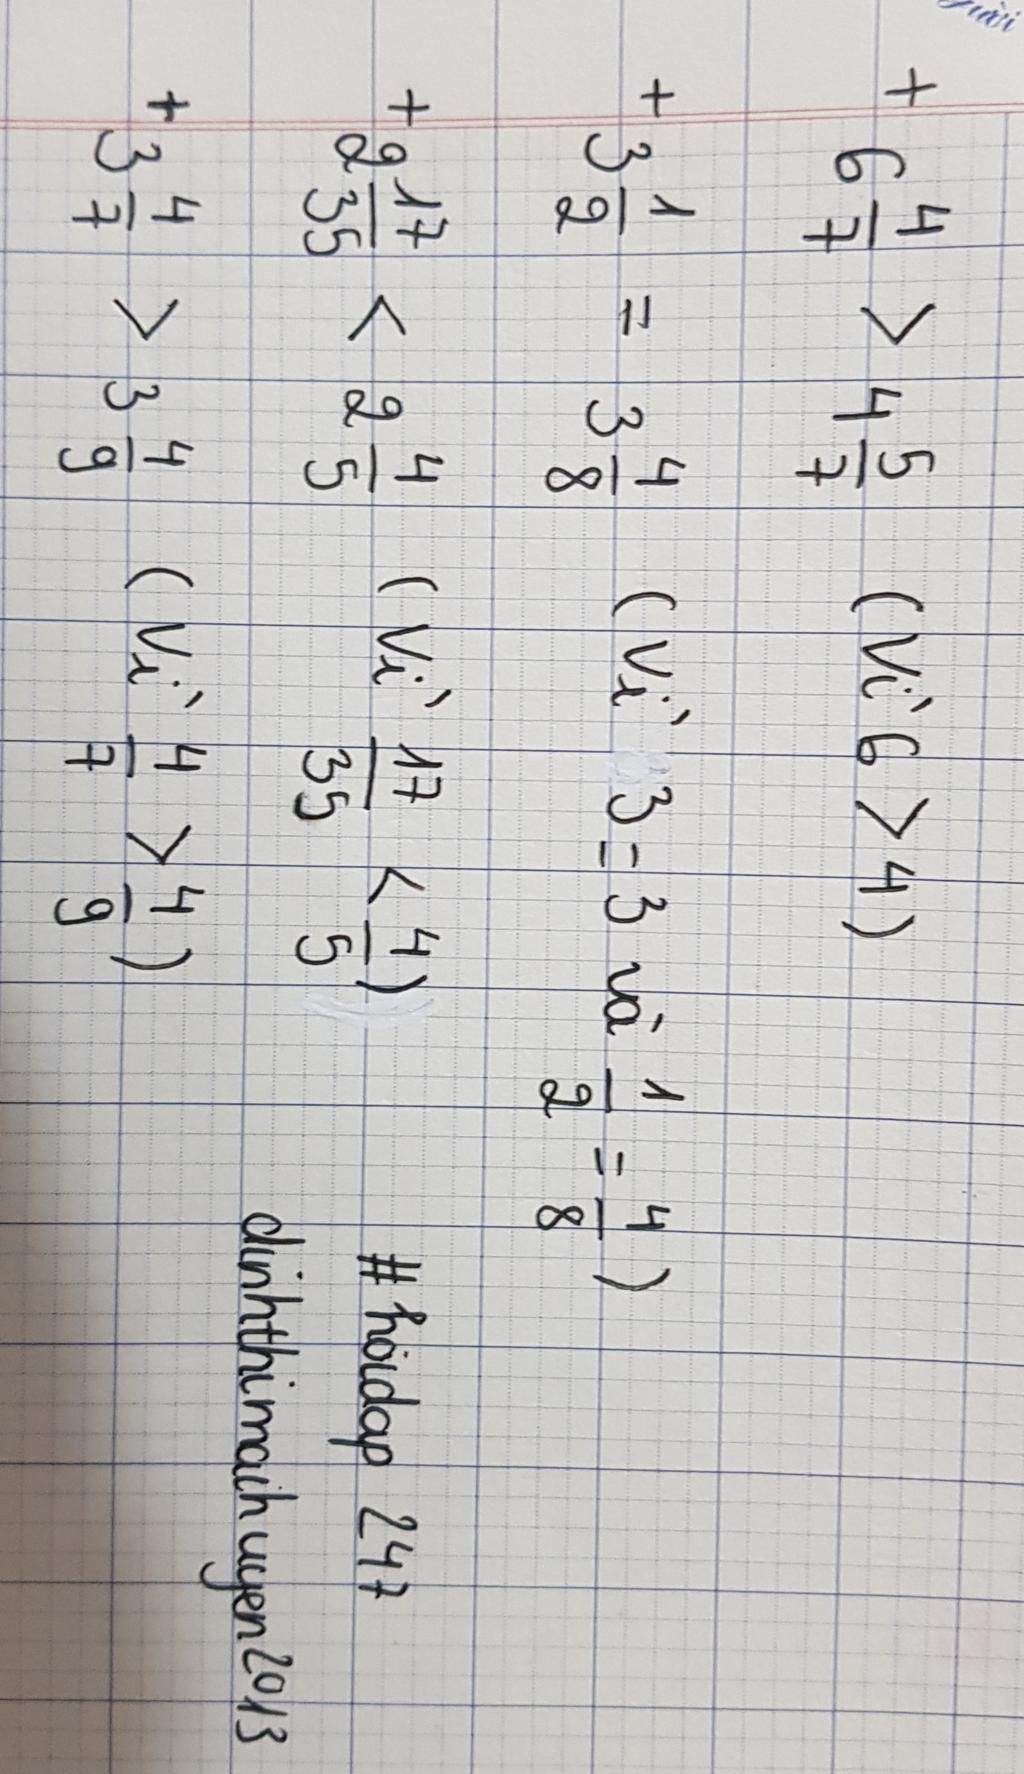 + 6 4/7 > 4 5/7 (Vì 6 > 4)
+ 3 1/2 = 3 4/8 (Vì 3 = 3 và 1/2 = 4/8)
+ 2 17/35 < 2 4/5 (Vì 17/35 < 4/5)
+ 3 4/7 > 3 4/9 (Vì 4/7 > 4/9)
# hoidap 247
dinhthimaihuyen2013